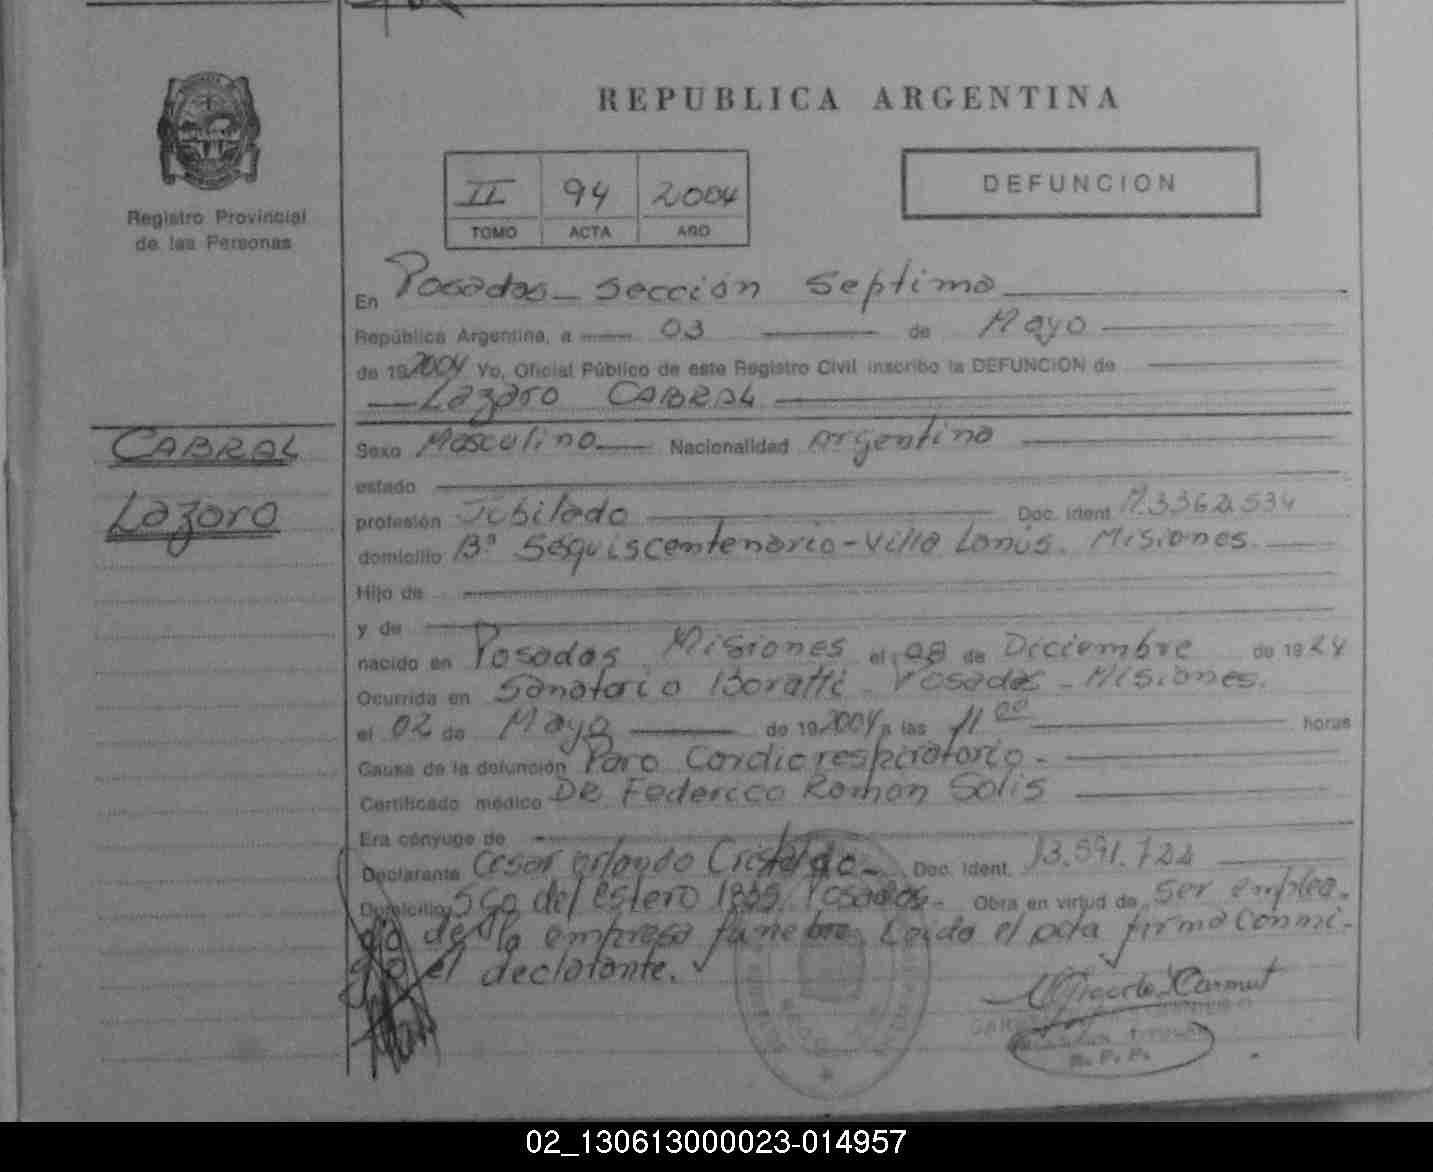 REPUBLICA ARGENTINA
Registro Provincial
de las Personas
II 94 2004
TOMO ACTA AÑO
DEFUNCION
En Posadas - Sección Septima
República Argentina, a 03 de Mayo
de 192004 Yo, Oficial Público de este Registro Civil inscribo la DEFUNCION de
Lazaro CABRAL
CABRAL
Lazaro
Sexo Masculino Nacionalidad Argentina
estado
profesión Jubilado Doc. Ident. M.3362.534
domicilio Bº Sesquiscentenario - Villa Lanús. Misiones.
Hijo de
y de
nacido en Posadas Misiones el 08 de Diciembre de 1924
Ocurrida en Sanatorio Boratti - Posadas - Misiones.
el 02 de Mayo de 192004 a las 11 00 horas
Causa de la defunción Paro Cardiorespiratorio -
Certificado médico DR Federico Roman Solis
Era cónyuge de
Declarante Cesar orlando Cristaldo - Doc. Ident. 13.591.722
Domicilio Sgo del estero 1835 Posadas - Obra en virtud de ser emplea-
do de la empresa funebre. Leida el acta firma conmi-
go el declarante.
R. P. P.
02_130613000023-014957